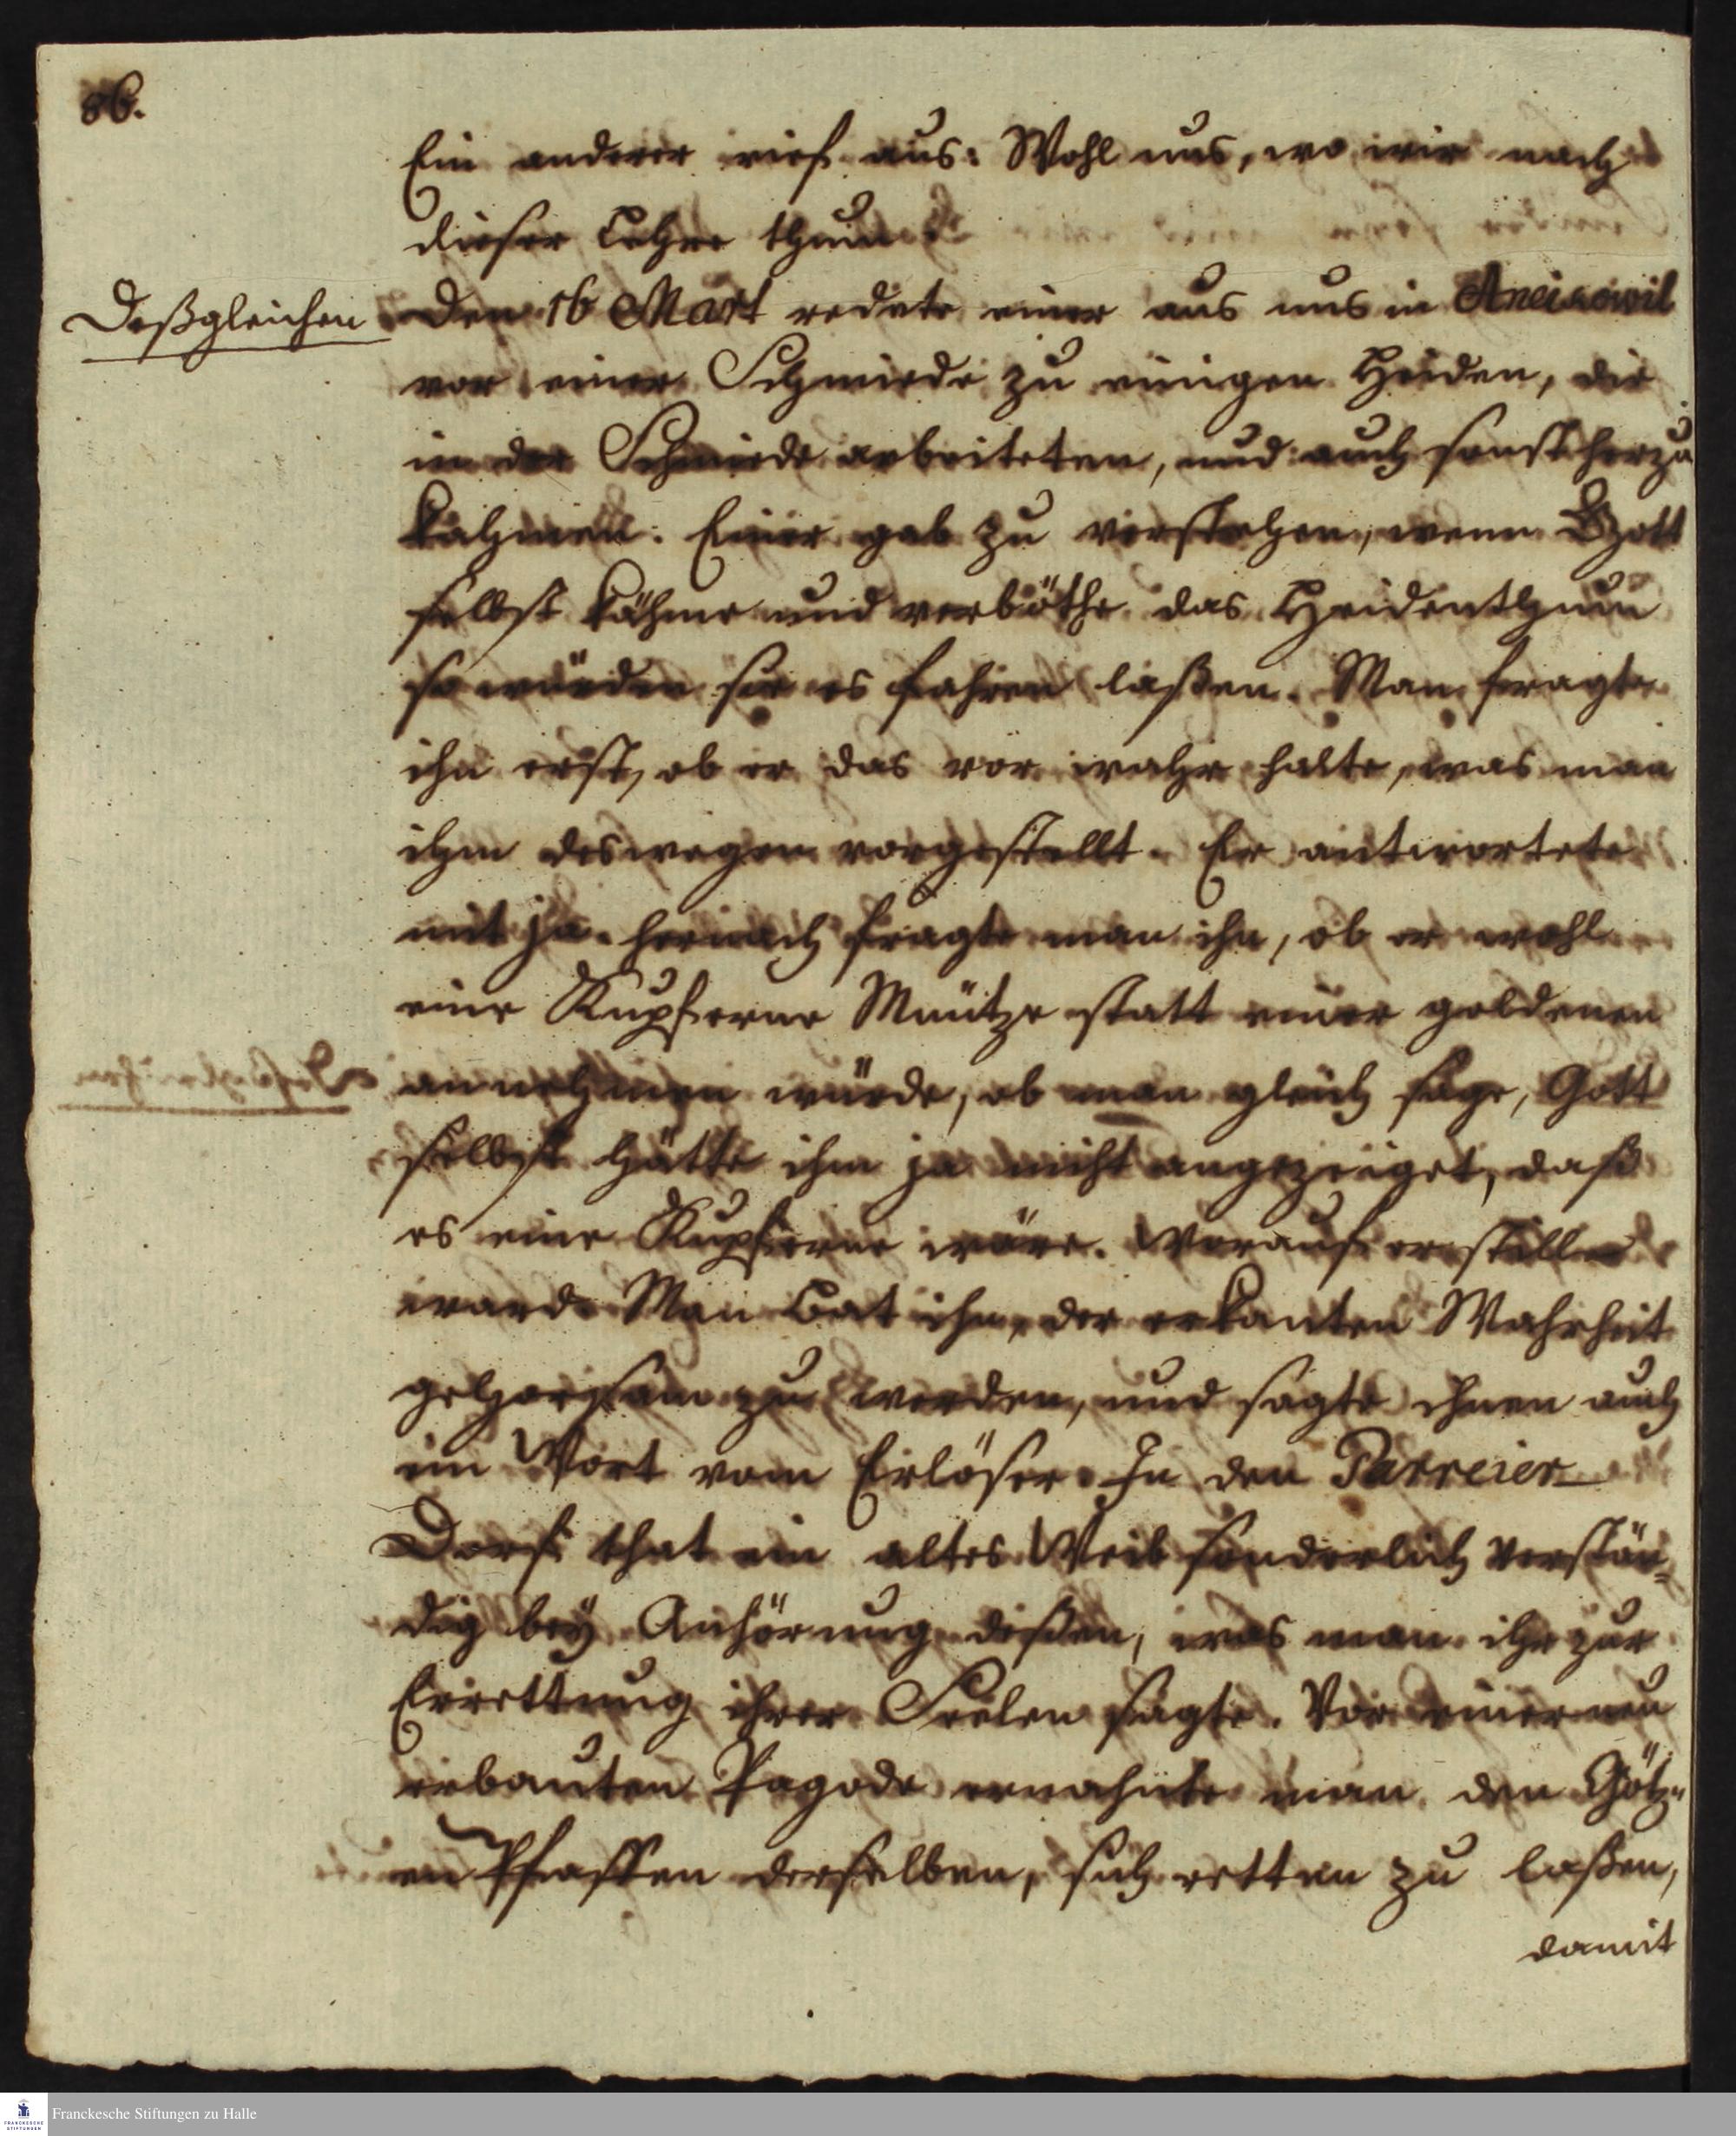 86.
Ein anderer rief aus: Wohl uns, wo wir nach
dieser Lehre thun.
Deßgleichen
Den 16 Mart redete einer aus uns in Aneicowil
vor einer Schmiede zu einigen Heiden, die
in der Schmiede arbeiteten, und auch sonst herzu
kahmen. Einer gab zu verstehen, wenn Gott
selbst kähme und verböthe das Heidenthum
so würden sie es fahren laßen. Man fragte
ihn erst, ob er das vor wahr halte, was man
ihm deswegen vorgestellt. Er antwortete
mit ja. hernach fragte man ihn, ob er wohl
eine Kupferne Müntze statt einer goldenen
annehmen würde, ob man gleich sage, Gott
selbst hätte ihm ja nicht angezeiget, daß
es eine Kupferne wäre. Worauf er stille
ward. Man bat ihn, der erkanten Wahrheit
gehorsam zu werden, und sagte ihnen auch
ein Wort vom Erlöser. In den Parreier
Dorf that ein altes Weib sonderlich verstän-
dig bey Anhörung deßen, was man ihr zur
Errettung ihrer Seelen sagte. Vor einer neu
erbauten Pagode ermahnte man den Götz-
en Pfaffen derselben, sich retten zu laßen,
damit
Franckesche Stiftungen zu Halle